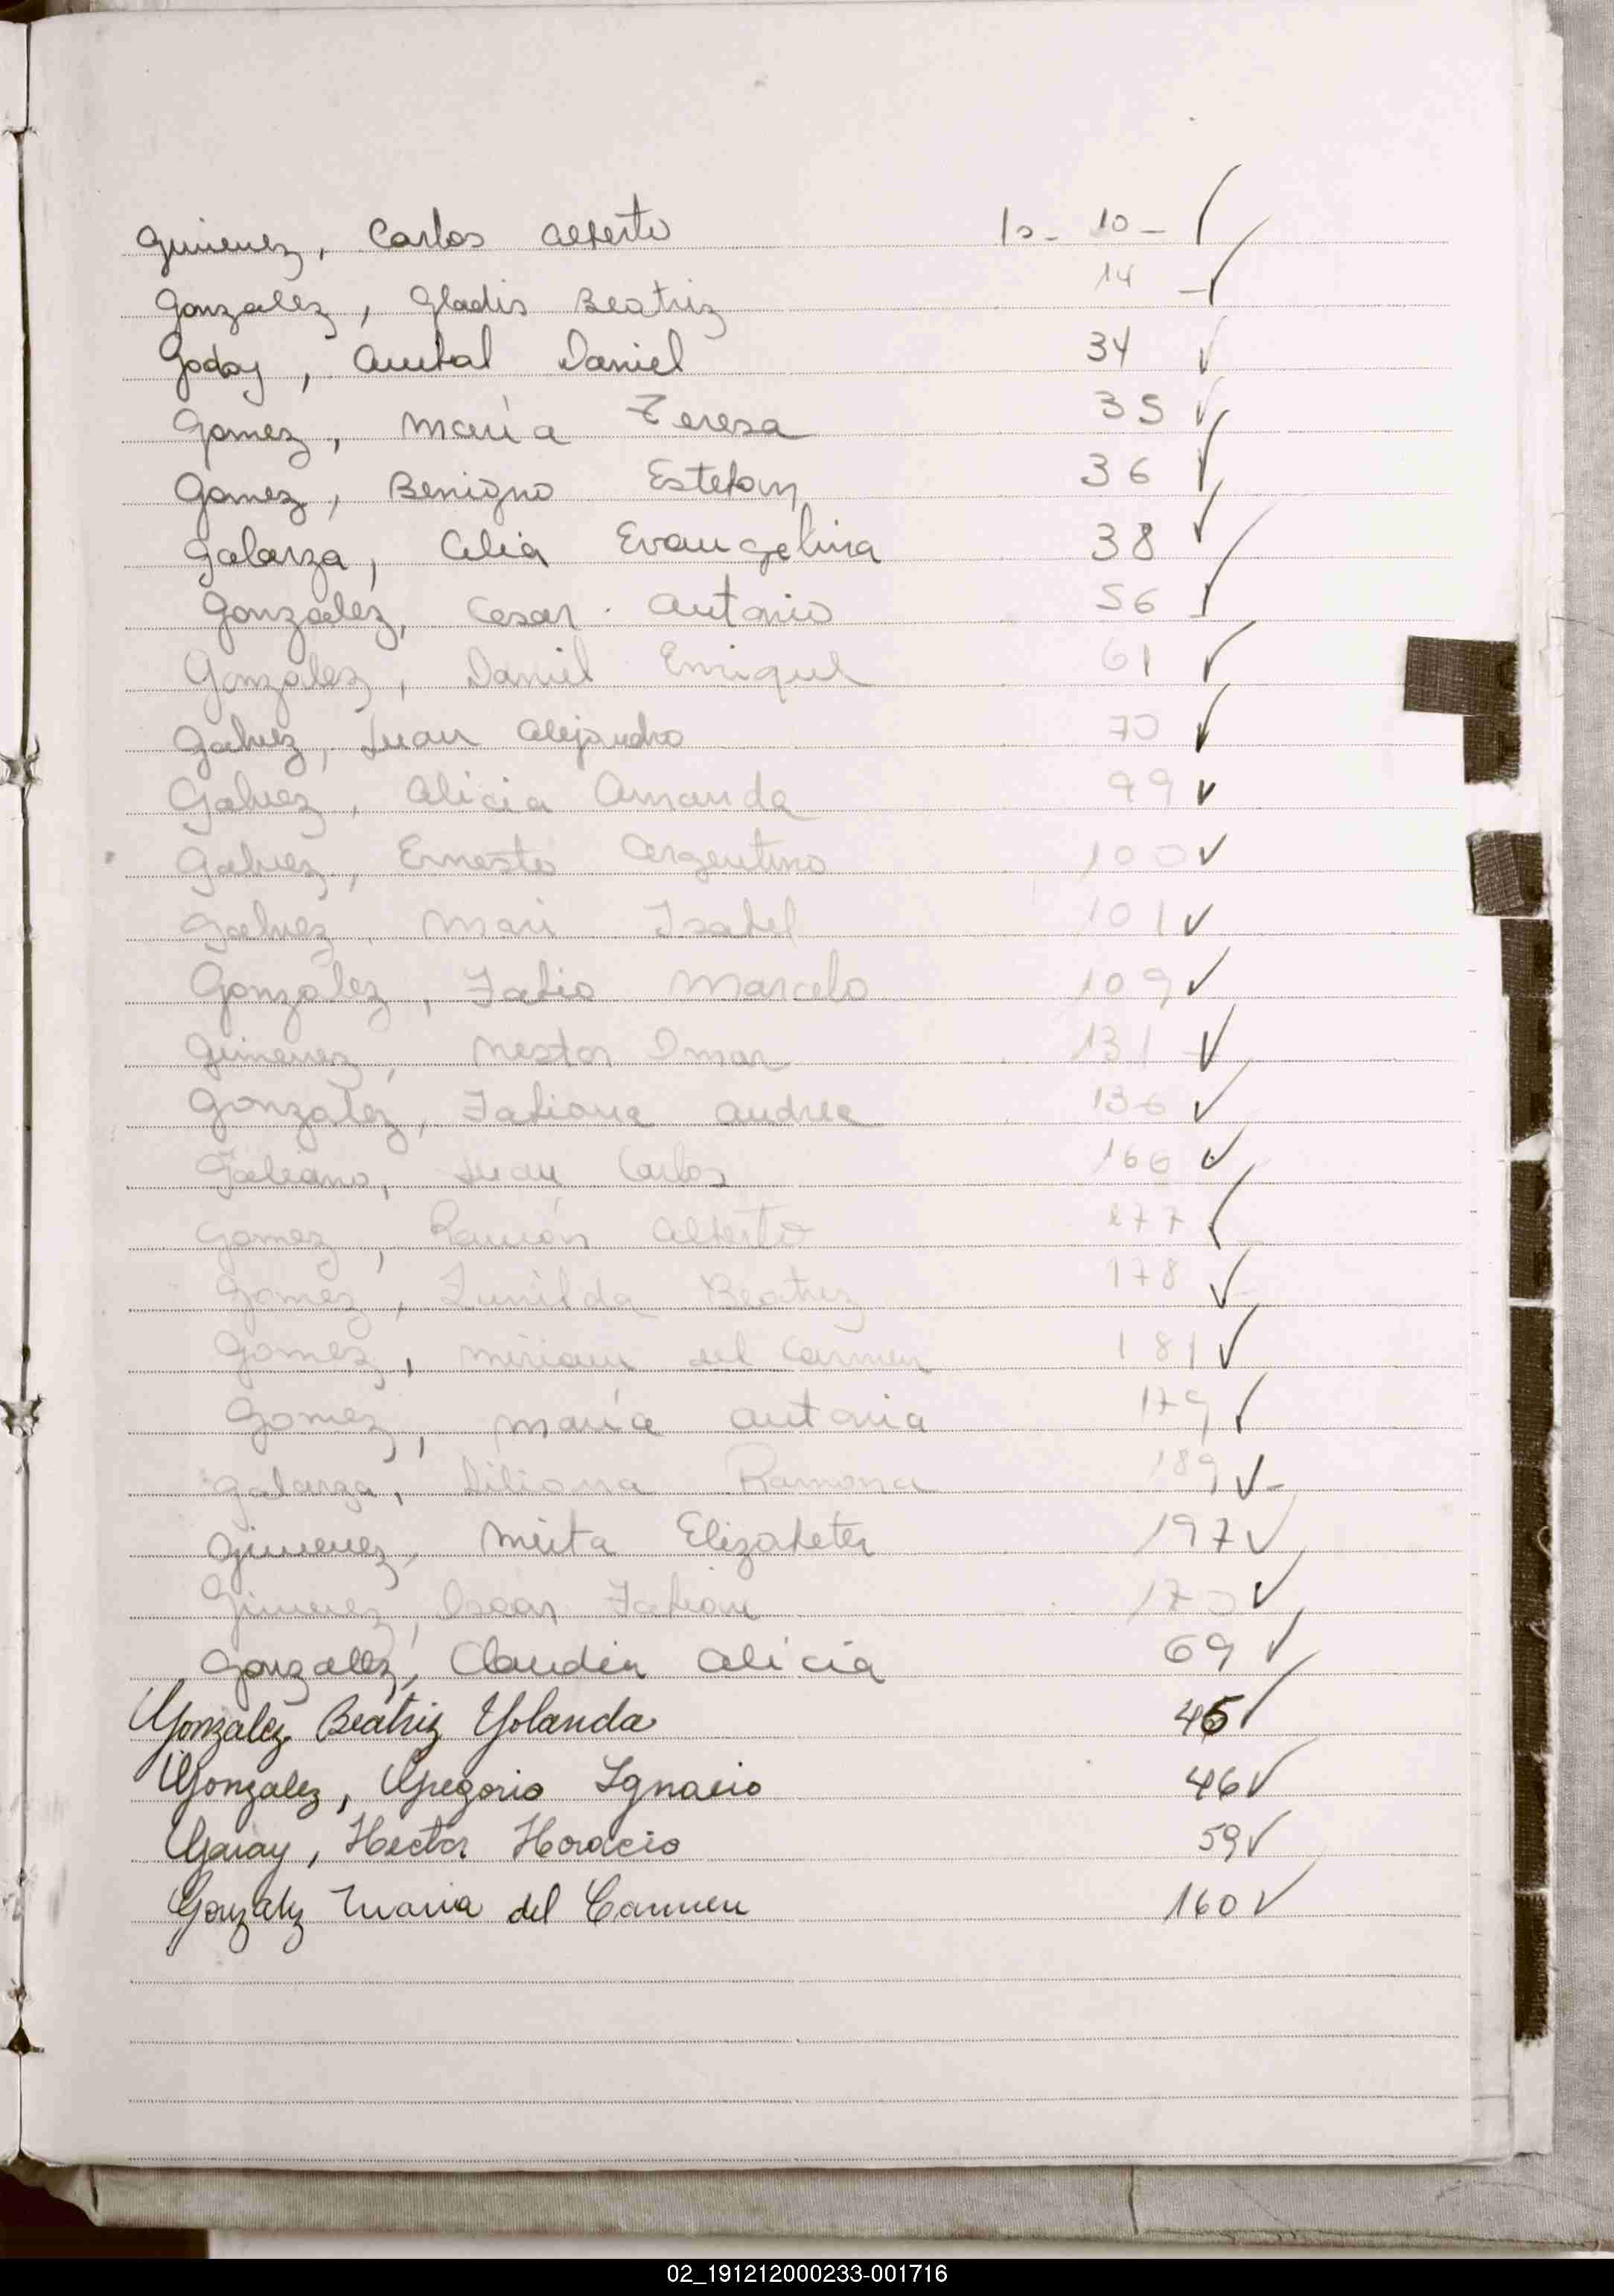 Gimenez, Carlos Alberto 10 - ✓
Gonzalez, Gladis Beatriz 14 - ✓
Godoy, Anibal Daniel 34 ✓
Gomez, María Teresa 35 ✓
Gomez, Benigno Esteban 36 ✓
Galarza, Celia Evangelina 38 ✓
Gonzalez, Cesar Antonio 56 ✓
Gonzalez, Daniel Enrique 61 ✓
Galvez, Juan Alejandro 70 ✓
Galvez, Alicia Amanda 99 ✓
Galvez, Ernesto Argentino 100 ✓
Galvez, Mari Isabel 101 ✓
González, Fabio Marcelo 109 ✓
Gimenez, Nestor Omar 131 ✓
Gonzalez, Fabiana Andrea 136 ✓
Galeano, Juan Carlos 166 ✓
Gomez, Ramón Alberto 177 ✓
Gomez, Zunilda Beatriz 178 ✓
Gomez, Miriam del Carmen 181 ✓
Gomez, María Antonia 179 ✓
Galarza, Liliana Ramona 189 ✓ -
Gimenez, Mirta Elizabeth 197 ✓
Gimenez, Oscar Fabian 170 ✓
Gonzalez, Claudia Alicia 69 ✓
Gonzalez Beatriz Yolanda 45 ✓
Gonzalez, Gregorio Ignacio 46 ✓
Garay, Hector Horacio 59 ✓
Gonzalez Maria del Carmen 160 ✓
02_191212000233-001716